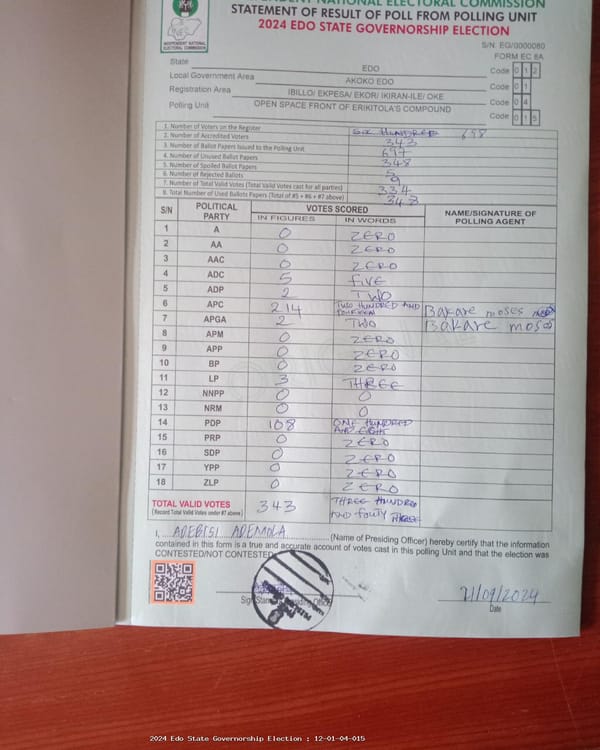 INDEPENDENT NATIONAL ELECTORAL COMMISSION
STATEMENT OF RESULT OF POLL FROM POLLING UNIT
2024 EDO STATE GOVERNORSHIP ELECTION
INDEPENDENT NATIONAL ELECTORAL COMMISSION
S/N. EG/0000080
FORM EC 8A
State EDO Code 0 1 2
Local Government Area AKOKO EDO Code 0 1
Registration Area IBILLO/ EKPESA/ EKOR/ IKIRAN-ILE/ OKE Code 0 4
Polling Unit OPEN SPACE FRONT OF ERIKITOLA'S COMPOUND Code 0 1 5
1. Number of Voters on the Register SIX HUNDRED 698
2. Number of Accredited Voters 343
3. Number of Ballot Papers Issued to the Polling Unit 697
4. Number of Unused Ballot Papers 348
5. Number of Spoiled Ballot Papers 5
6. Number of Rejected Ballots 9
7. Number of Total Valid Votes (Total Valid Votes cast for all parties) 334
8. Total Number of Used Ballots Papers (Total of #5 + #6 + #7 above) 343
S/N POLITICAL PARTY VOTES SCORED NAME/SIGNATURE OF POLLING AGENT
IN FIGURES IN WORDS
1 A 0 ZERO
2 AA 0 ZERO
3 AAC 0 ZERO
4 ADC 5 FIVE
5 ADP 2 TWO
6 APC 214 TWO HUNDRED AND FOURTEEN Bakare moses
7 APGA 2 TWO Bakare mose
8 APM 0 ZERO
9 APP 0 ZERO
10 BP 0 ZERO
11 LP 3 THREE
12 NNPP 0 0
13 NRM 0 0
14 PDP 108 ONE HUNDRED AND EIGHT
15 PRP 0 ZERO
16 SDP 0 ZERO
17 YPP 0 ZERO
18 ZLP 0 ZERO
TOTAL VALID VOTES 343 THREE HUNDRED
(Record Total Valid Votes under #7 above) AND FOUTY THREE
I, ADEBISI ADEMOLA (Name of Presiding Officer) hereby certify that the information
contained in this form is a true and accurate account of votes cast in this polling Unit and that the election was
CONTESTED/NOT CONTESTED
21/09/2024
Date
2024 Edo State Governorship Election : 12-01-04-015